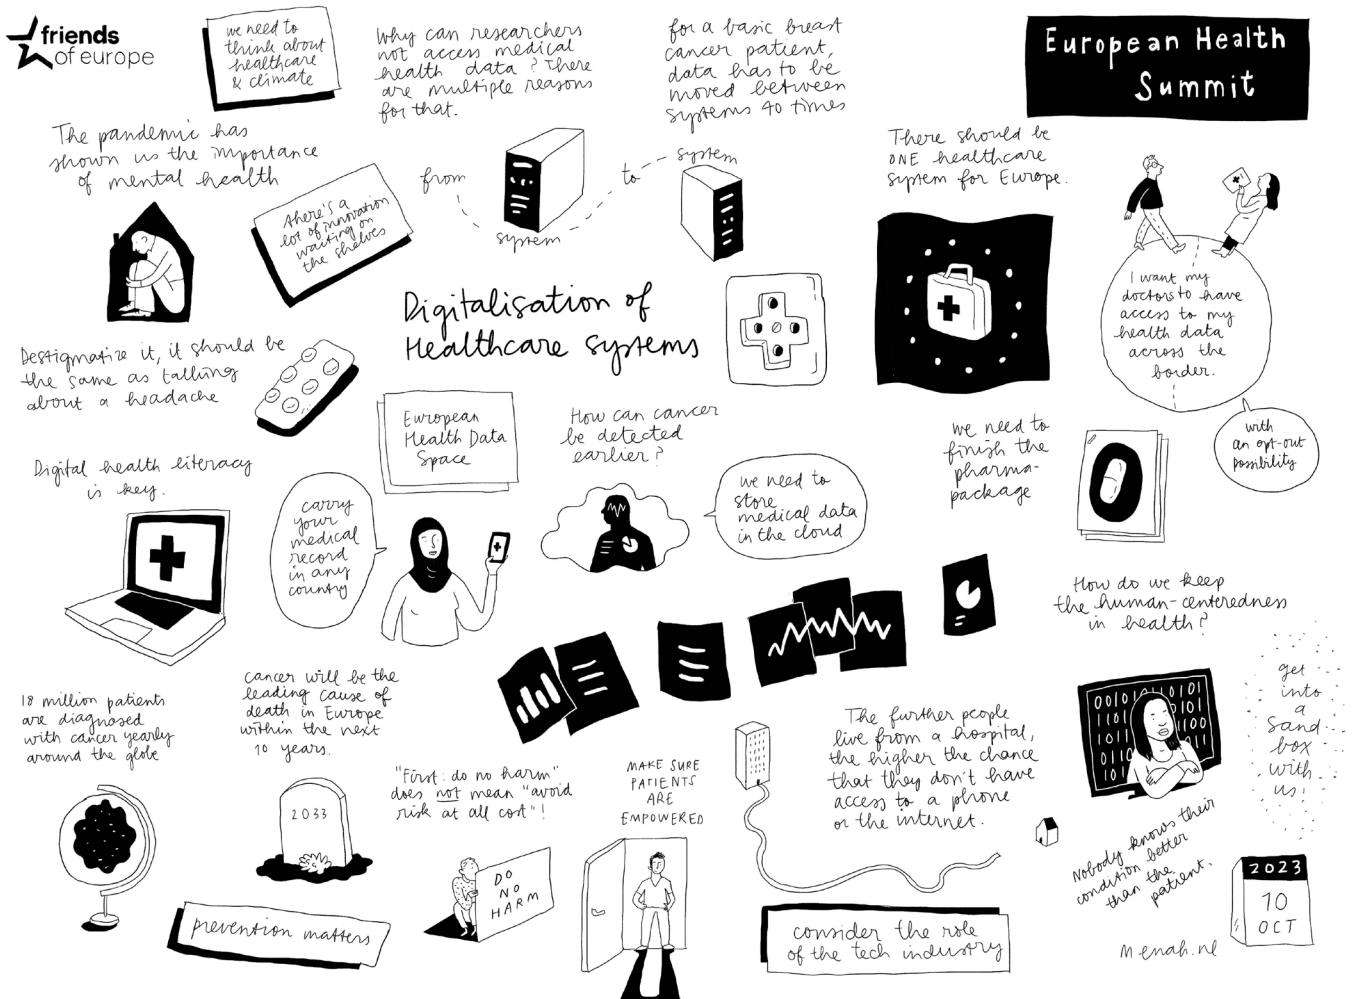 friends
of europe
we need to
think about
healthcare
& climate
Why can researchers
not access medical
health data? There
are multiple reasons
for that.
for a basic breast
cancer patient,
data has to be
moved between
systems 40 times
European Health
Summit
The pandemic has
shown us the importance
of mental health
there's a
lot of innovation
waiting on
the shelves
from
system
to
system
There should be
ONE healthcare
system for Europe.
I want my
doctors to have
access to my
health data
across the
border.
with
an opt-out
possibility
Digitalisation of
Healthcare systems
Destigmatize it, it should be
the same as talking
about a headache
European
Health Data
Space
How can cancer
be detected
earlier?
we need to
store
medical data
in the cloud
we need to
finish the
pharma-
package
Digital health literacy
is key.
carry
your
medical
record
in any
country
How do we keep
the human-centeredness
in health?
get
into
a
sand
box
with
us!
18 million patients
are diagnosed
with cancer yearly
around the globe
cancer will be the
leading cause of
death in Europe
within the next
10 years.
2033
"First: do no harm"
does not mean "avoid
risk at all cost"!
DO
NO
HARM
MAKE SURE
PATIENTS
ARE
EMPOWERED
The further people
live from a hospital,
the higher the chance
that they don't have
access to a phone
or the internet.
Nobody knows their
condition better
than the
patient.
prevention matters
consider the role
of the tech industry
2023
10
OCT
Menah.nl